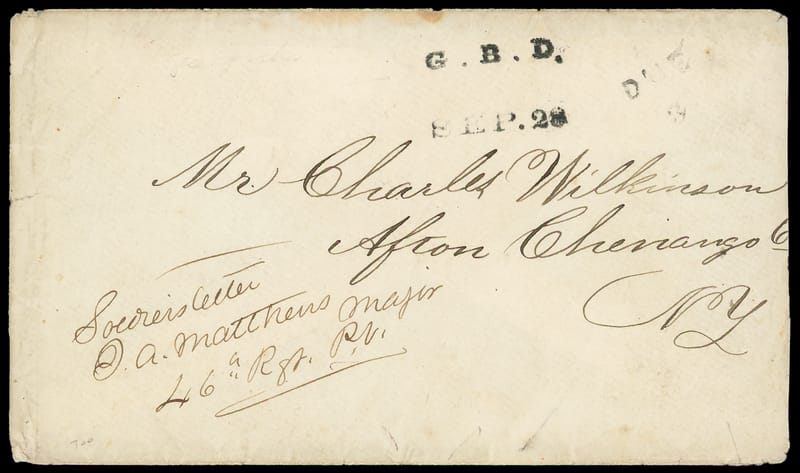 G. B. D.
SEP. 28
DUE
Mr. Charles Wilkinson
Afton Chenango Co
NY
Soldiers letter
O. A. Matthews Major
46th Rgt. P.V.